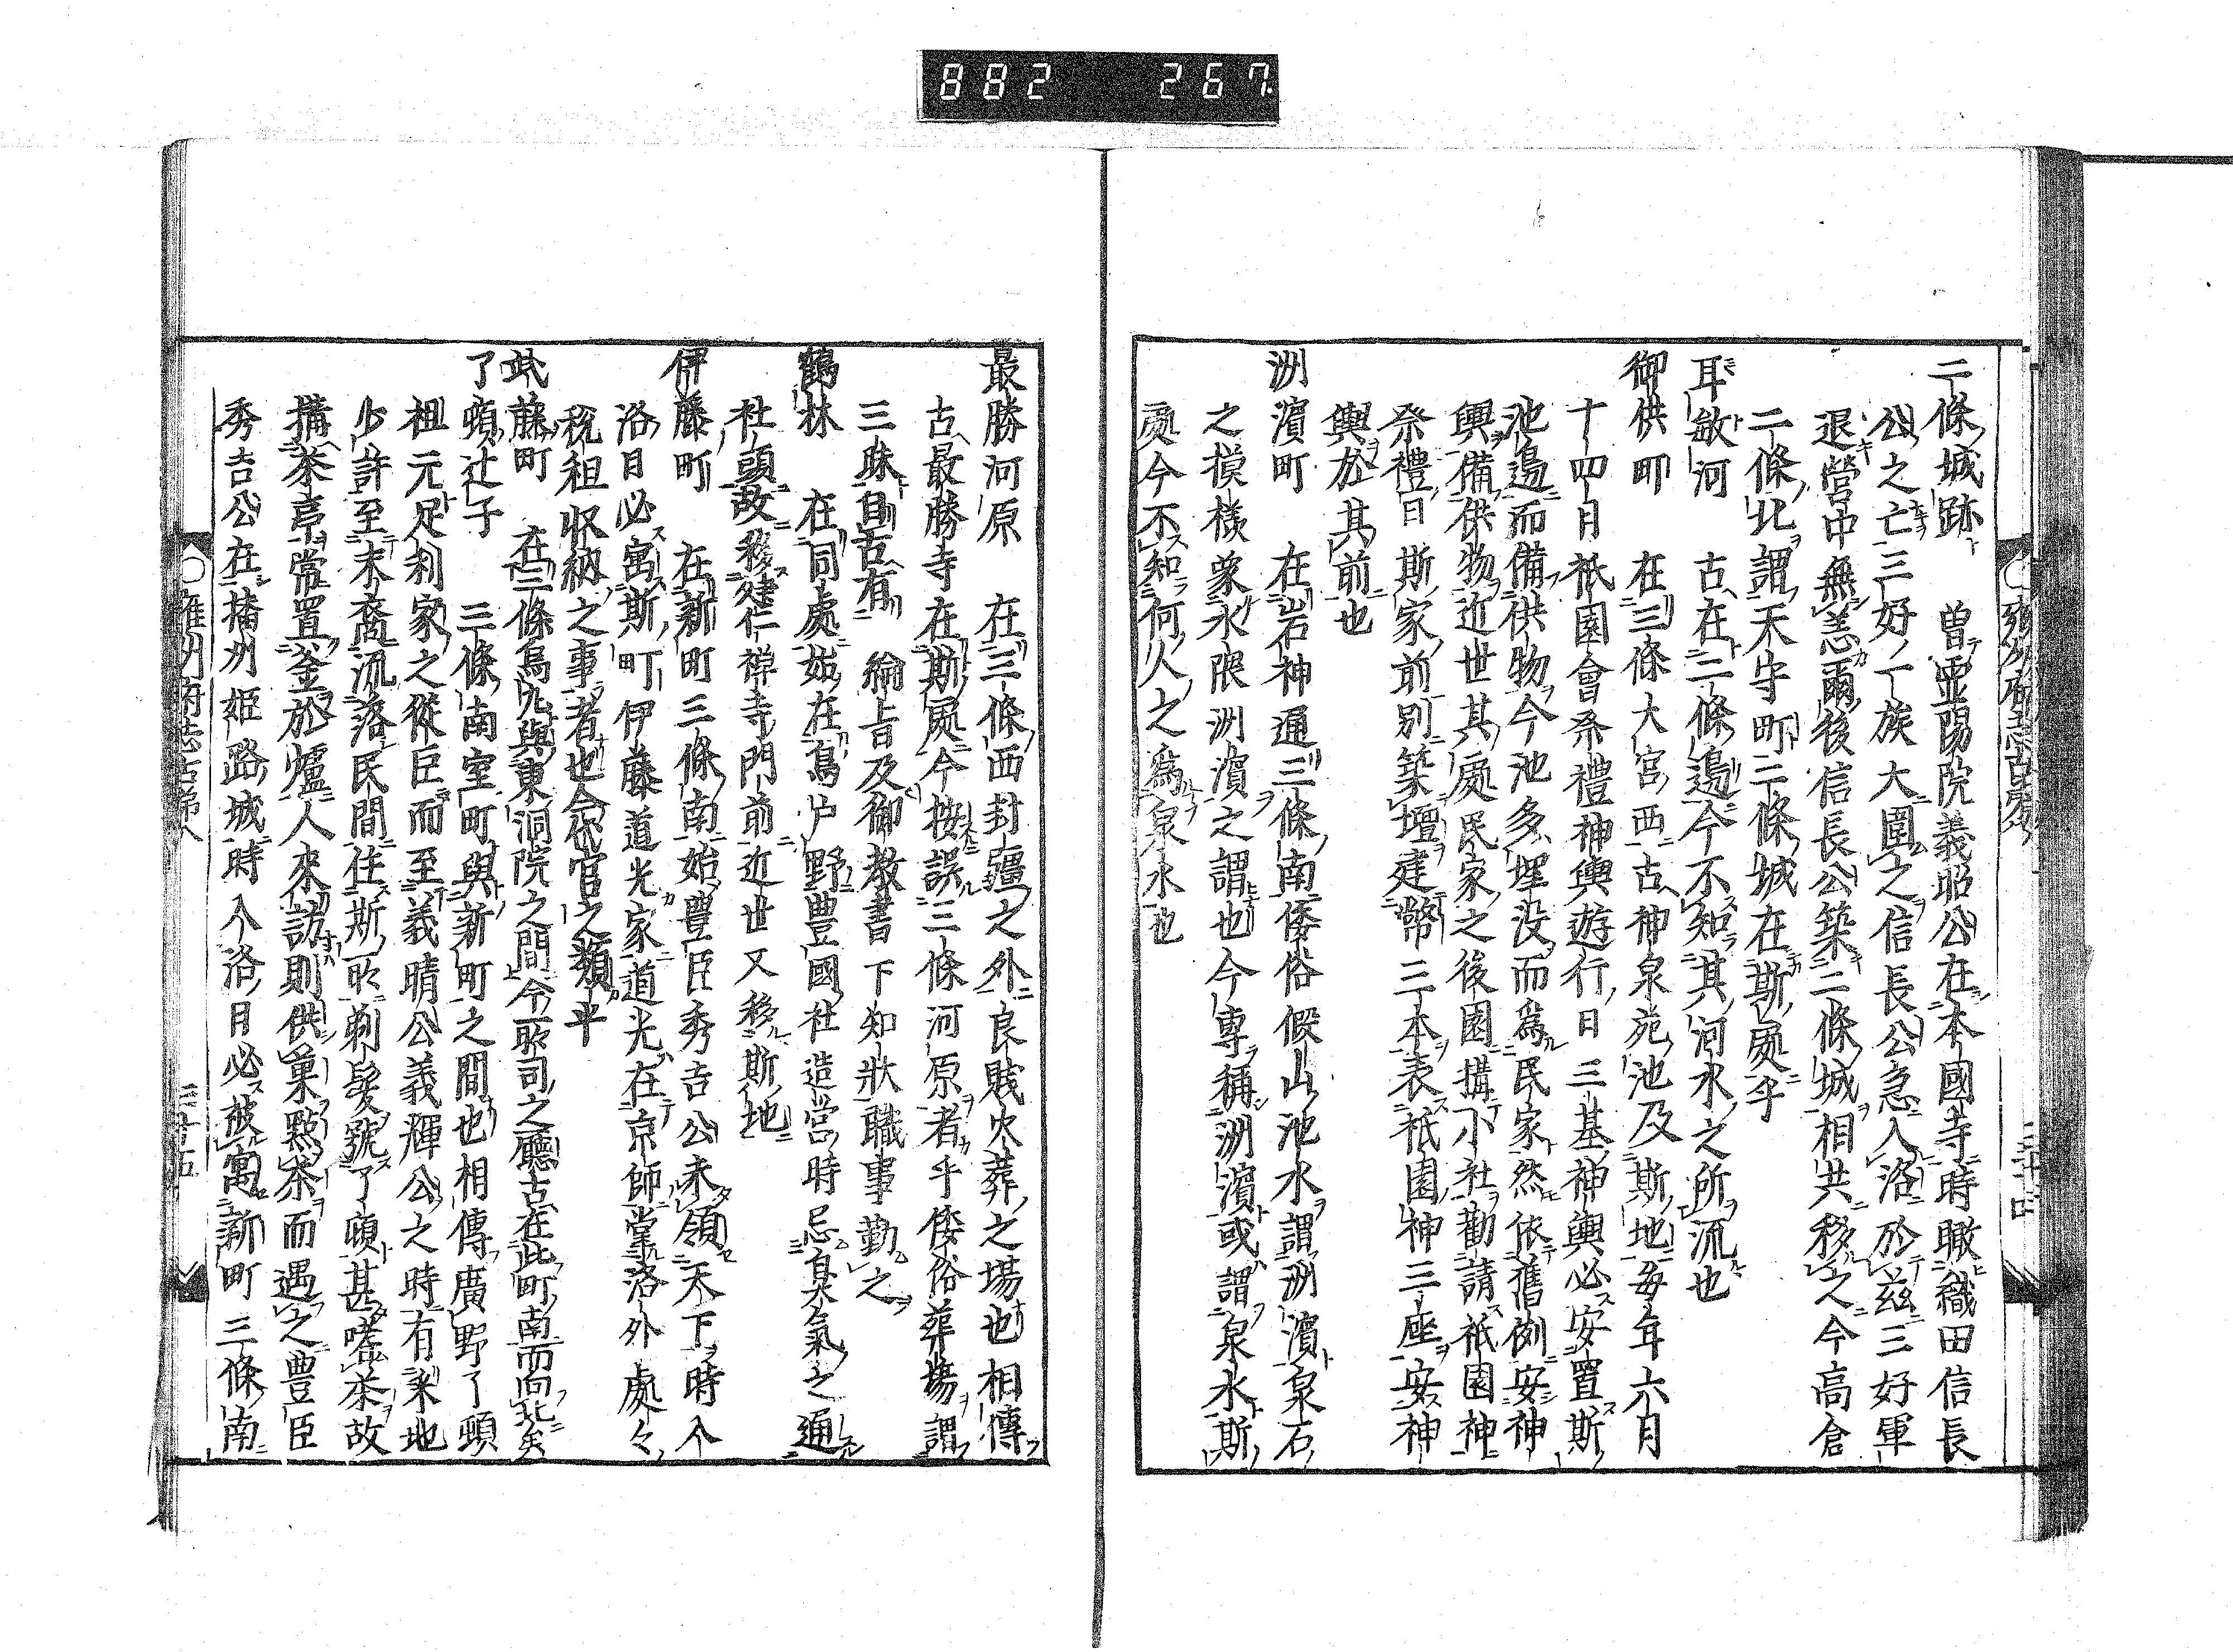 882 267
二條城跡 曽霊陽院義昭公在本國寺時瞰織田信長
公之亡三好一族大圍之信長公急入洛於茲三好軍
退營中無恙爾後信長公築二條城相共移之今高倉
二條北謂天守町二條城在斯處乎
耳敏河 古在二條邉今不知其河水之所流也
御供町 在三條大宮西古神泉苑池及斯地毎年六月
十四日祇園會祭禮神輿遊行日三基神輿必安置斯
池邉而備供物今池多埋没而爲民家然依舊例安神
輿備供物近世其處民家之後園構小社勸請祇園神
祭禮日斯家前別築壇建幣三本表祇園神三座安神
輿於其前也
洲濵町 在岩神通三條南倭俗假山池水謂洲濵泉石
之摸様象水隈洲濵之謂也今專稱洲濵或謂泉水斯
處今不知何人之爲泉水也
雍州府志古蹟八 三十四
最勝河原 在三條西封疆之外良賤火葬之場也相傳
古最勝寺在斯處今按誤三條河原者乎倭俗葬場謂
三昧自古有 綸旨及御教書下知狀職事勤之
鶴林 在同處始在鳥戸野豊國社造營時忌臭氣之通
社頭故移建仁禅寺門前近世又移斯地
伊藤町 在新町三條南始豊臣秀吉公未領天下時入
洛日必寓斯町伊藤道光家道光在京師掌洛外處々
税租収納之事者也今代官之類乎
武藤町 在二條烏丸與東洞院之間今所司之廳古在此町南而向北矣
了頓辻子 三條南室町與新町之間也相傳廣野了頓
祖元足利家之從臣而至義晴公義輝公之時有采地
少許至末裔流落民間住斯所剃髪號了頓甚嗜茶故
搆茶亭常置釜於爐人來訪則供菓點茶而遇之豊臣
秀吉公在播州姫路城時入洛日必被寓新町三條南
雍州府志古蹟八 三十五